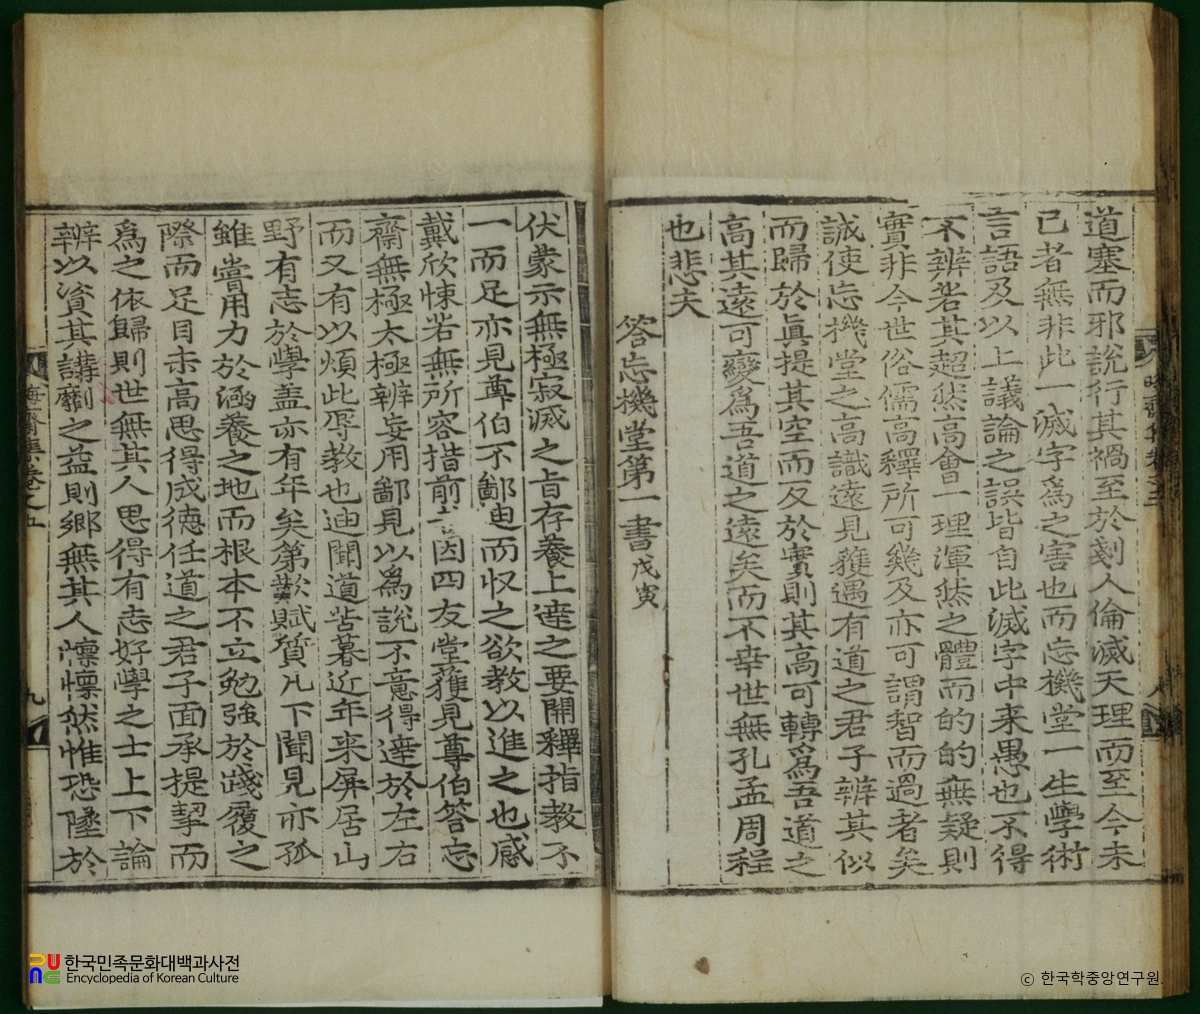 道塞而邪說行其禍至於刬人倫滅天理而至今未
已者無非此一滅字爲之害也而忘機堂一生學術
言語及以上議論之誤皆自此滅字中來愚也不得
不辨若其超然高會一理渾然之體而的的無疑則
實非今世俗儒高釋所可幾及亦可謂智而過者矣
誠使忘機堂之高識遠見獲遇有道之君子辨其似
而歸於眞提其空而反於實則其高可轉爲吾道之
高其遠可變爲吾道之遠矣而不幸世無孔孟周程
也悲夫
答忘機堂第一書 戊寅
伏蒙示無極寂滅之旨存養上達之要開釋指敎不
一而足亦見尊伯不鄙迪而收之欲敎以進之也感
戴欣悚若無所容措前 因四友堂獲見尊伯答忘
齋無極太極辨妄用鄙見以爲說不意得達於左右
而又有以煩此辱敎也迪聞道苦暮近年來屏居山
野有志於學盖亦有年矣第歎賦質凡下聞見亦孤
雖嘗用力於涵養之地而根本不立勉強於踐履之
際而足目未高思得成德任道之君子面承提挈而
爲之依歸則世無其人思得有志好學之士上下論
辨以資其講劘之益則鄕無其人懍懍然惟恐墜於
晦齋集卷之五
九
한국민족문화대백과사전
Encyclopedia of Korean Culture
ⓒ 한국학중앙연구원.